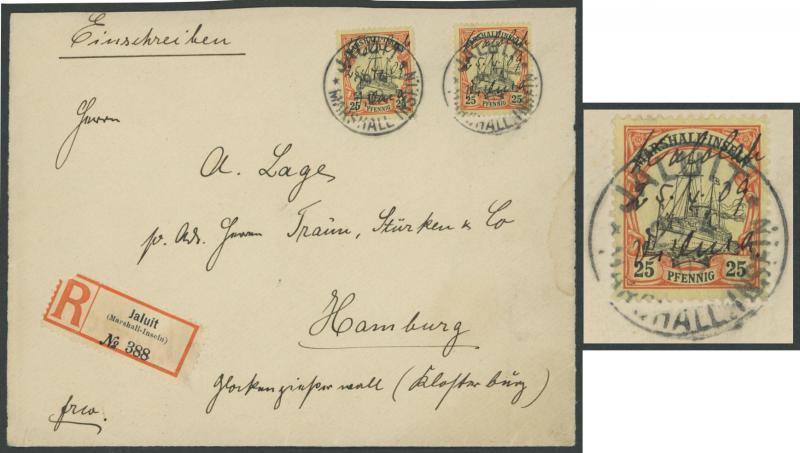 Einschreiben
JALUIT
MARSHALL-INSELN
25 25
JALUIT
MARSHALL-INSELN
25 25
Herrn
A. Lage
p. Adr. Herren Traün, Stürken & Co
Hamburg
Glockengießerwall (Klosterburg)
frco.
R
Jaluit
(Marshall-Inseln)
№ 388
MARSHALL-INSELN
JALUIT
25 PFENNIG 25
MARSHALL-INSELN